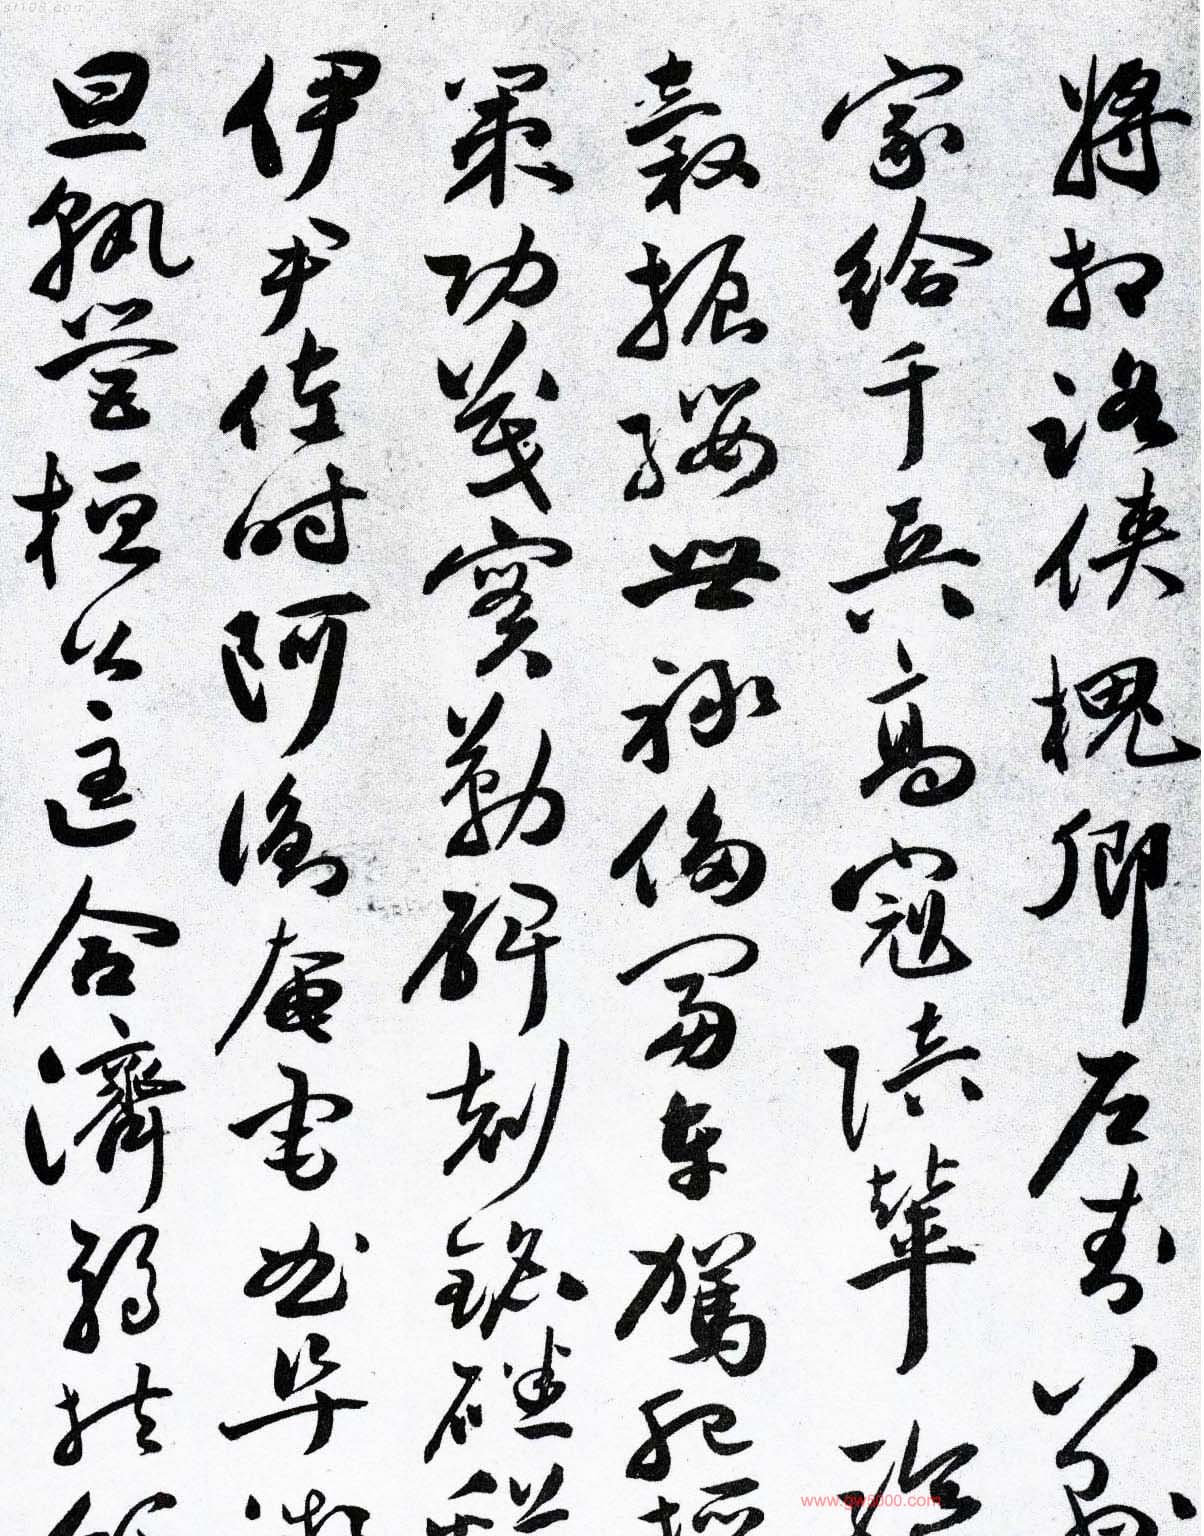 將相路俠槐卿戶封八縣
家給千兵高冠陪輦驅
轂振纓世祿侈富車駕肥輕
策功茂實勒碑刻銘磻溪
伊尹佐時阿衡奄宅曲阜微
旦孰營桓公匡合濟弱扶傾
www.gw5000.com